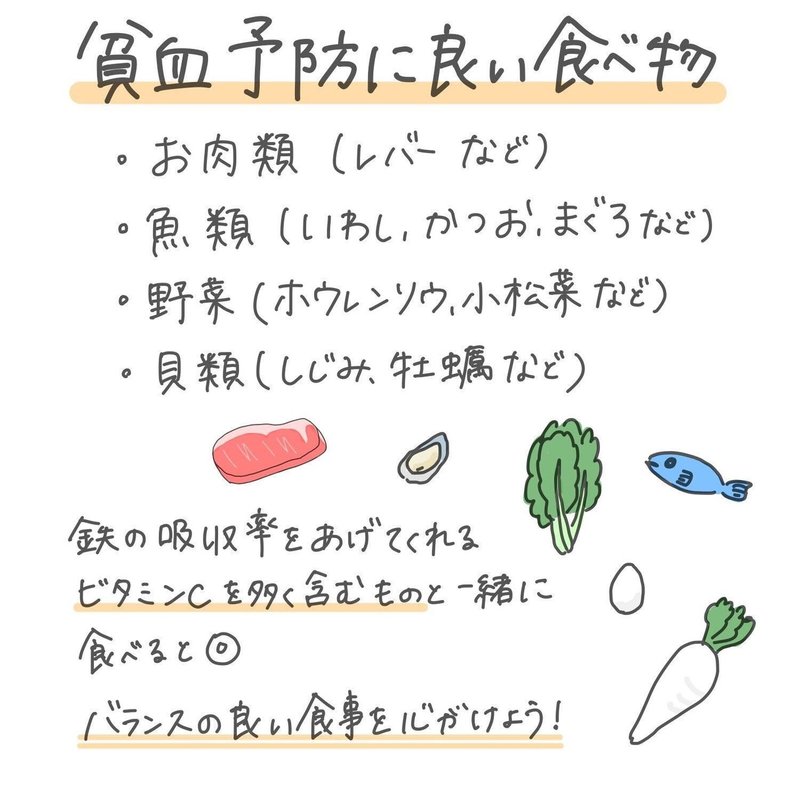 貧血予防に良い食べ物
• お肉類 (レバーなど)
• 魚類 (いわし, かつお, まぐろなど)
• 野菜 (ホウレンソウ, 小松菜など)
• 貝類 (しじみ、牡蠣など)
鉄の吸収率をあげてくれる
ビタミンCを多く含むものと一緒に
食べると◎
バランスの良い食事を心がけよう!